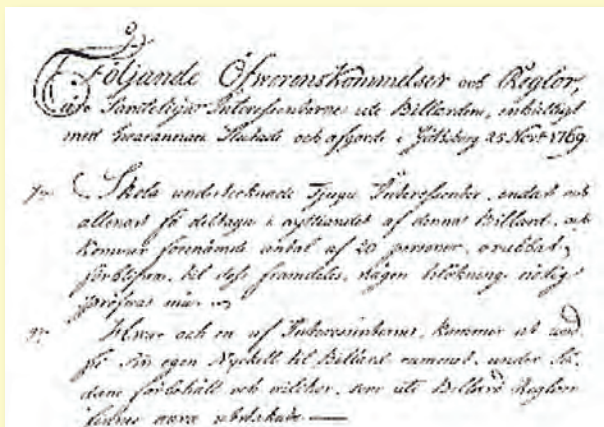 Följande Öfwerenskommelser och Reglor,
äro Samtelige Interessenterne uti Billarden, enhälligt
med hwarannan Slutade och afgorde i Götheborg 25 Novr 1769.
1o Skola undertecknade Tjugu Interessenter, endast och
allenast få deltaga i nyttiandet af denna Billard, och
kommer förenämde antal af 20 personer, orubbat,
förblifwa, til dess framdeles, någon tilökning nödig
pröfwas må.
2o Hwar och en af Interessenterne, kommer at
få sin egen Nyckell til Billard rummet, under så-
dane förbehåll och wilckor, som uti Billard Reglor